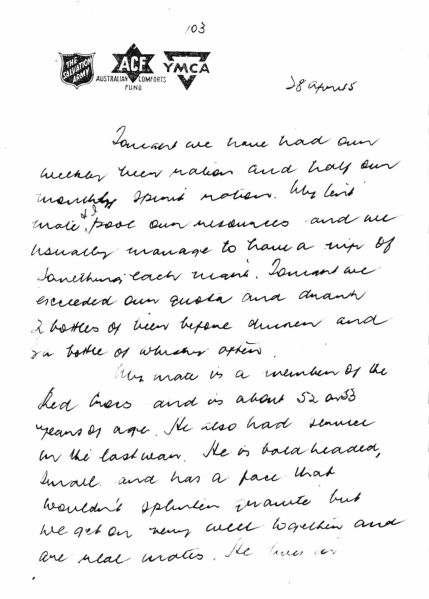 103
THE SALVATION ARMY
ACF
AUSTRALIAN COMFORTS FUND
YMCA
28 April 5
Tonight we have had our
weekly beer ration and half our
monthly spirit ration. My tent
mate & I pool our resources and we
usually manage to have a nip of
something each night. Tonight we
exceeded our quota and drank
2 bottles of beer before dinner and
a bottle of whisky after.
My mate is a member of the
Red Cross and is about 52 or 53
years of age. He also had service
in the last war. He is bald headed,
small and has a face that
wouldn't splinter granite but
we get on very well together and
are real mates. He lives in